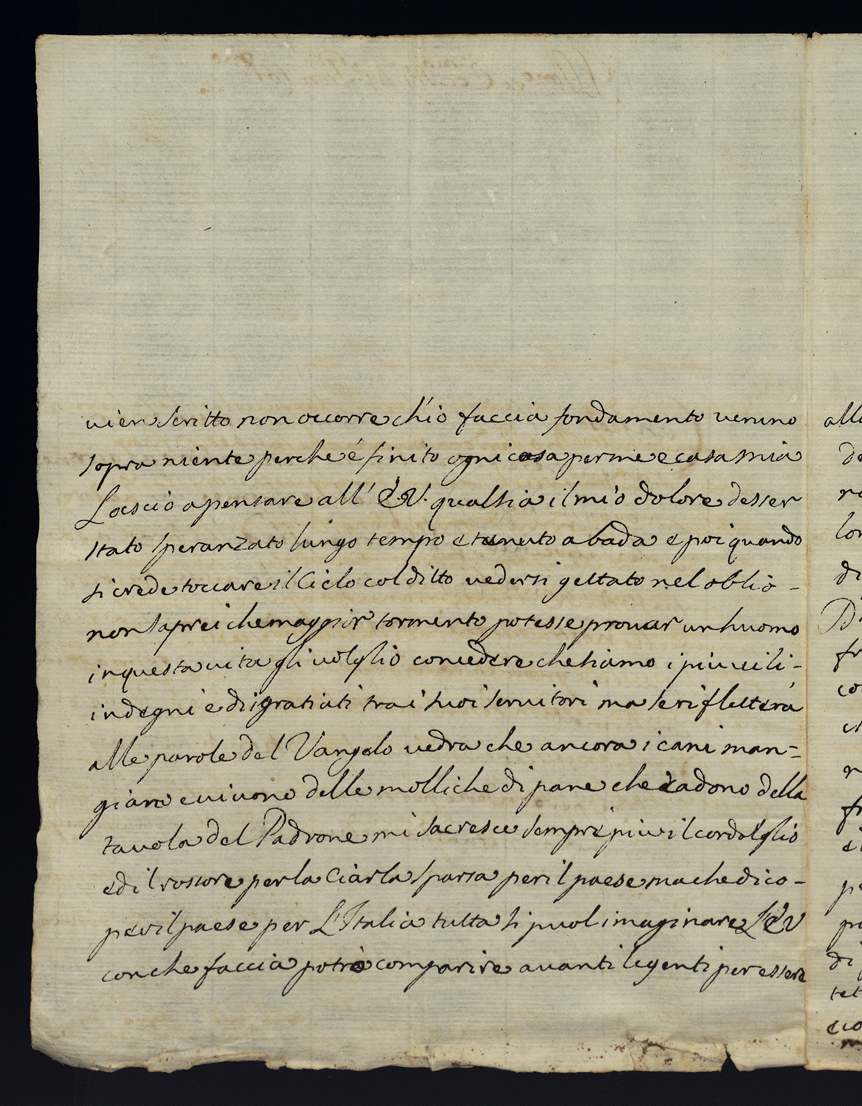 vien scritto non occorre ch'io faccia fondamento veruno
sopra niente perche é finito ogni cosa per me e casa mia
Lascio a pensare all' E.V. qual sia il mio dolore desser
stato speranzato lungo tempo e tenuto a bada e poi quando
si crede toccare il Cielo col ditto vedersi gettato nel oblio -
non saprei che maggior tormento potesse provar un huomo
in questa vita gli voglio concedere che siamo i piu vili -
indegni e disgratiati tra i suoi servitori ma se rifletterá
alle parole del Vangelo vedra che ancora i cani man=
giano e vivono delle molliche di pane che cadono della
tavola del Padrone mi sacresce sempre piu il cordoglio
ed il rossore per la Ciarla sparsa per il paese ma che dico -
per il paese per L'Italia tutta si puol imaginare L'E.V
con che faccia potrò comparire avanti le genti per essere